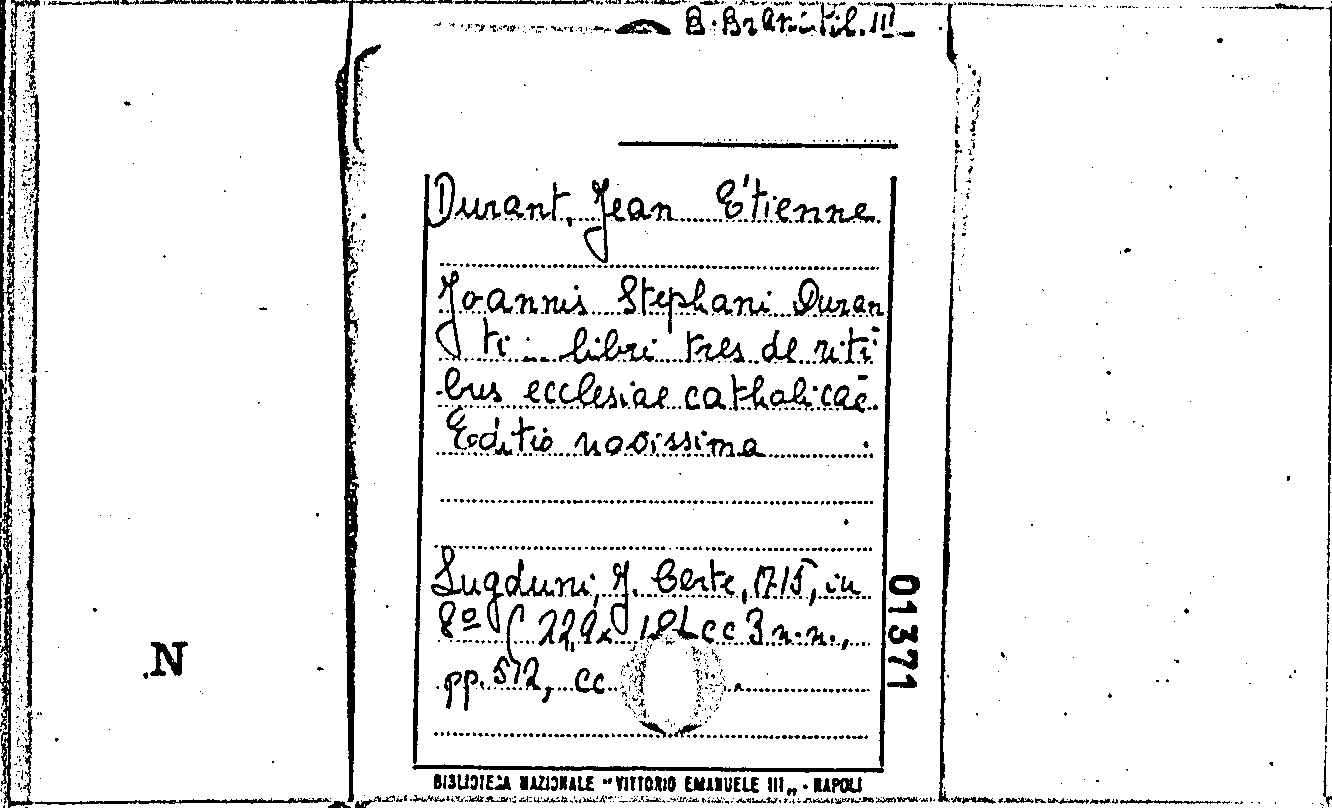 B. Branc. fil. III
Durant, Jean Étienne
Joannis Stephani Duran
ti ... libri tres de riti
bus ecclesiae catholicae.
Editio novissima
Lugduni, J. Certe, 1715, in
8º ( cc 3 n.n.,
pp. 512, cc
01371
N
BIBLIOTECA NAZIONALE "VITTORIO EMANUELE III„ - NAPOLI